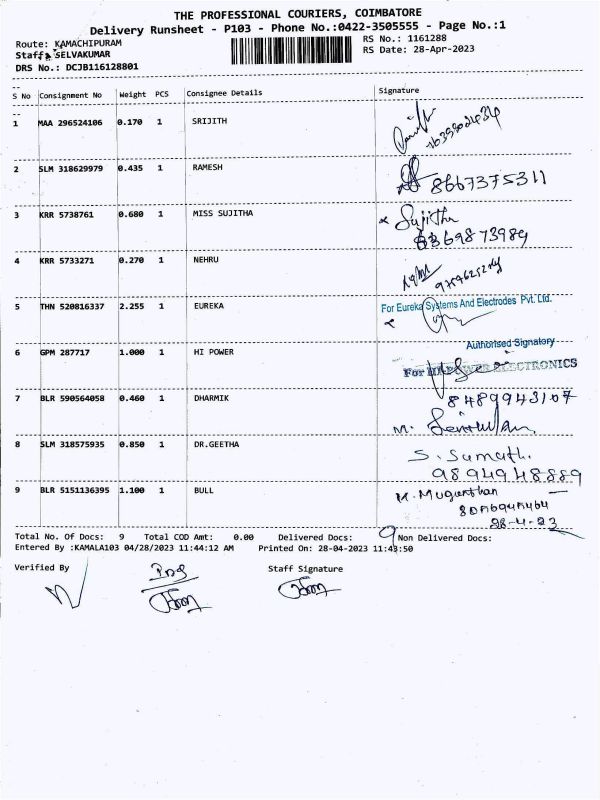 THE PROFESSIONAL COURIERS, COIMBATORE
Delivery Runsheet - P103 - Phone No.:0422-3505555 - Page No.:1
Route: KAMACHIPURAM
RS No.: 1161288
Staff: SELVAKUMAR
RS Date: 28-Apr-2023
DRS No.: DCJB116128801
S No Consignment No Weight PCS Consignee Details Signature
1 MAA 296524106 0.170 1 SRIJITH
2 SLM 318629979 0.435 1 RAMESH
8667375311
3 KRR 5738761 0.680 1 MISS SUJITHA
Sujitha
6369873989
4 KRR 5733271 0.270 1 NEHRU
5 THN 520816337 2.255 1 EUREKA
For Eureka Systems And Electrodes Pvt. Ltd.
Authorised Signatory
6 GPM 287717 1.000 1 HI POWER
For HI POWER ELECTRONICS
7 BLR 590564058 0.460 1 DHARMIK
8489943107
M.
8 SLM 318575935 0.850 1 DR.GEETHA
S. Sumathi
9894948889
9 BLR 5151136395 1.100 1 BULL
M. Mugunthan
28-4-23
Total No. Of Docs: 9 Total COD Amt: 0.00 Delivered Docs: 9 Non Delivered Docs:
Entered By :KAMALA103 04/28/2023 11:44:12 AM Printed On: 28-04-2023 11:43:50
Verified By
Staff Signature